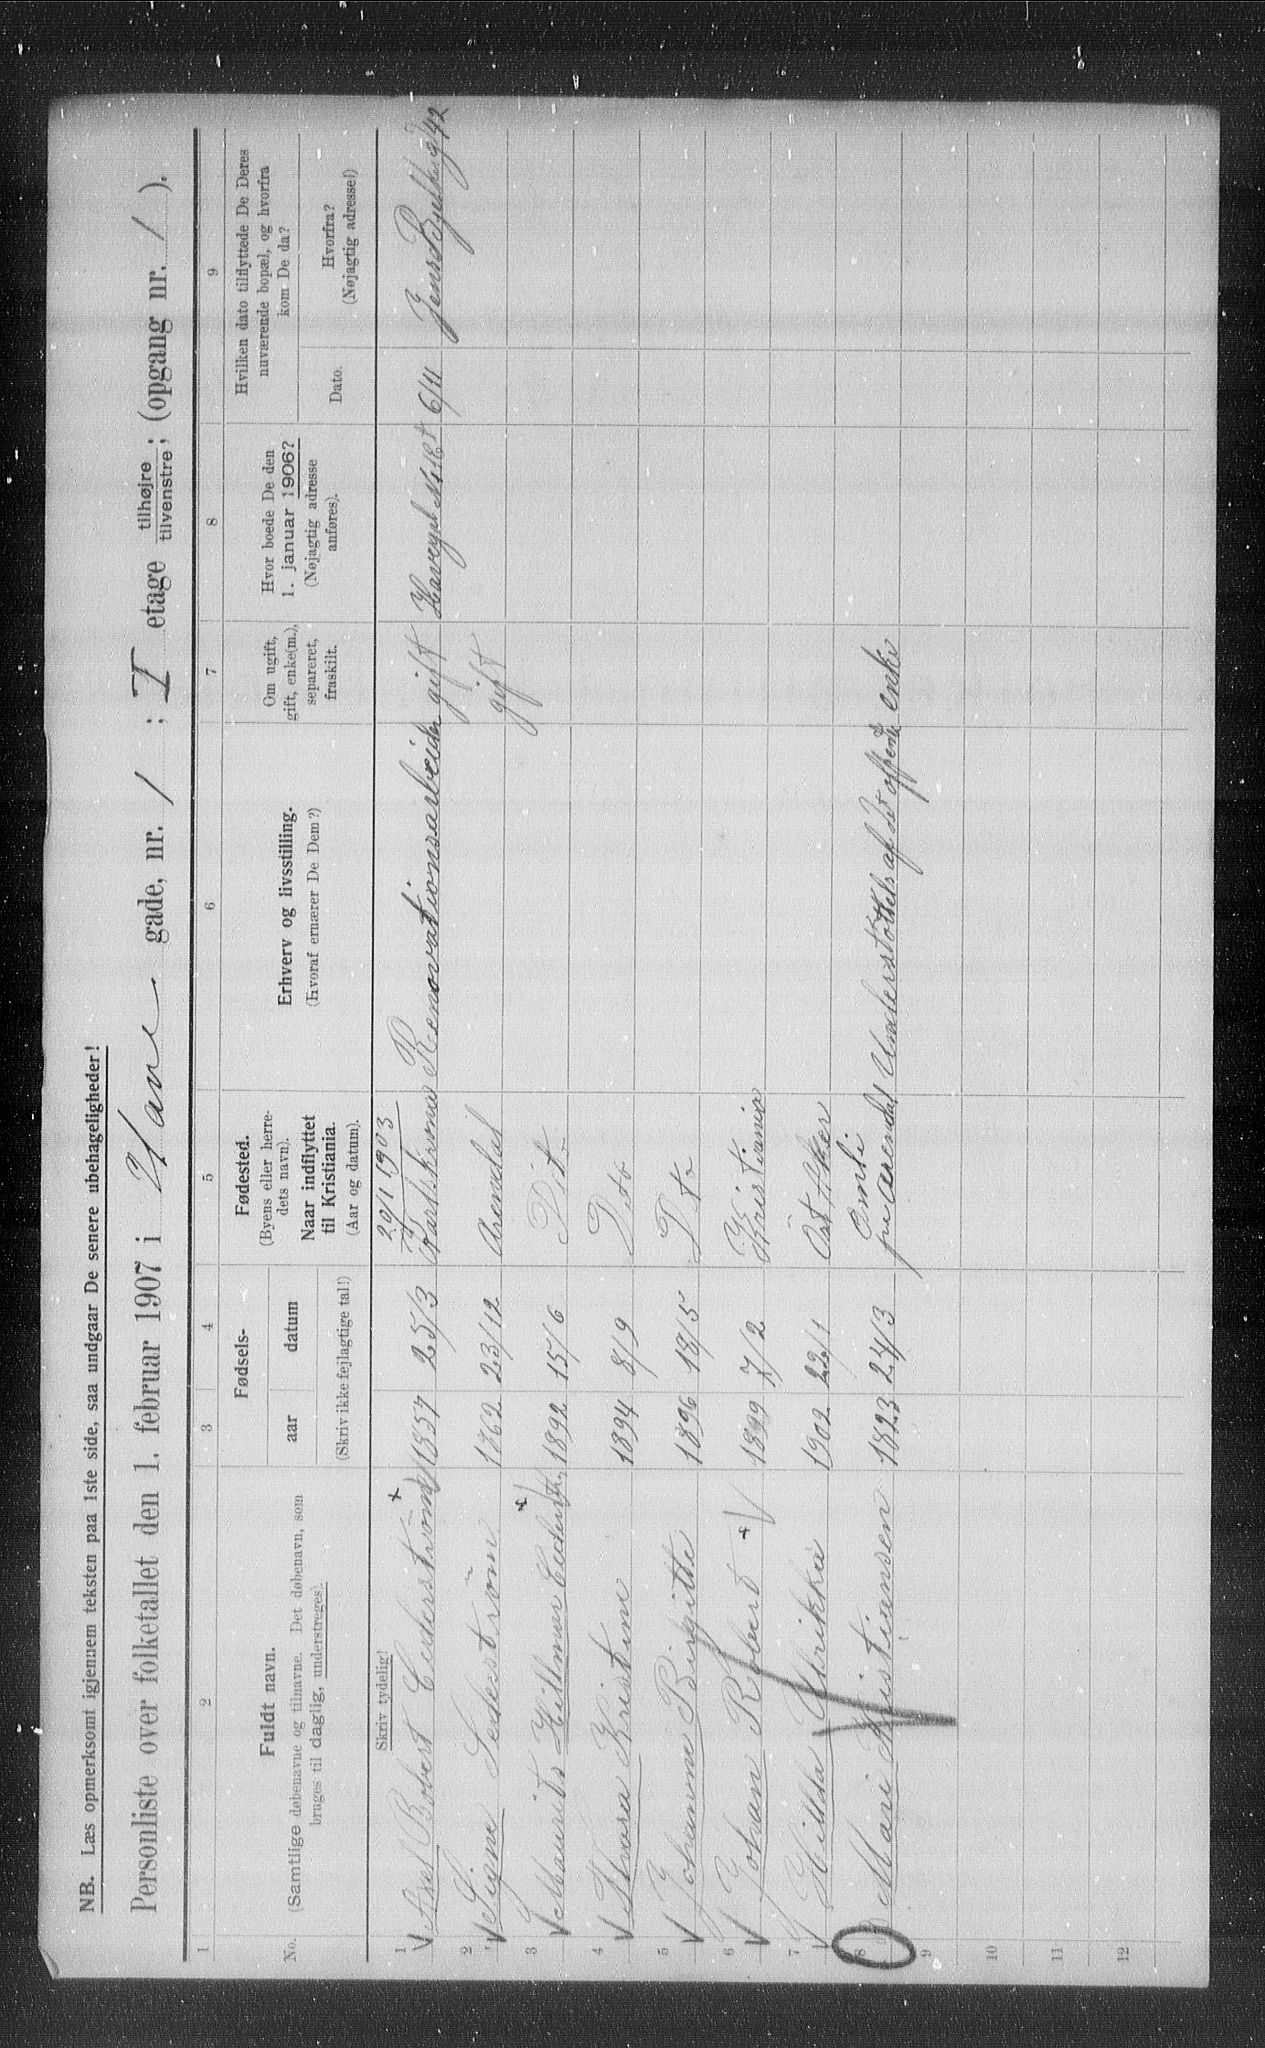 NB. Læs opmerksomt igjennem teksten paa 1ste side, saa undgaar De senere ubehageligheder!
Personliste over folketallet den 1. februar 1907 i Have gade, nr. 1 ; I etage tilhøjre tilvenstre; (opgang nr. 1 ).
1 2 3 4 5 6 7 8 9
No.
Fuldt navn.
(Samtlige døbenavne og tilnavne. Det døbenavn, som
bruges til daglig, understreges).
Fødsels-
aar datum
(Skriv ikke fejlagtige tal!)
Fødested.
(Byens eller herre-
dets navn).
Naar indflyttet
til Kristiania.
(Aar og datum).
Erhverv og livsstilling.
(Hvoraf ernærer De Dem?)
Om ugift,
gift, enke(m.),
separeret,
fraskilt.
Hvor boede De den
1. januar 1906?
(Nøjagtig adresse
anføres).
Hvilken dato tilflyttede De Deres
nuværende bopæl, og hvorfra
kom De da?
Dato.
Hvorfra?
(Nøjagtig adresse!)
Skriv tydelig!
20/1 1903
1 Axel Robert Cederström 1857 25/3 Karlskrona Renovationsarbeider gift 6/11 Jens Bjelkes g 42
2 Signe Sederström 1862 23/12 Arendal gift
3 Mauritz Hillmar 1892 15/6 Dito
4 Thora Kristine 1894 8/9 Dito
5 Johanne Birgitte 1896 18/5 Dto
6 Johan Robert 1899 7/2 Kristiania
7 Hilda Ulrikke 1902 22/1 Øst Aker
8 Mari Kristiansen 1823 24/3 Omli
Arendal Understøttels af det offentl enke
9
10
11
12